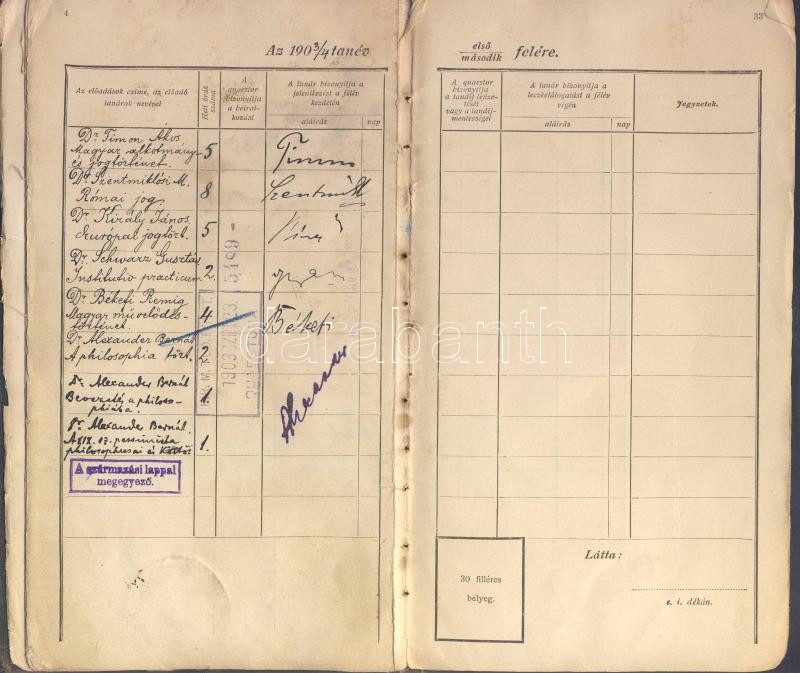 4
33
Az 1903/4 tanév
első
második felére.
Az előadások címe, az előadó
tanárok nevével
Heti órák
száma
A
quaestor
bizonyítja
a beirat-
kozást
A tanár bizonyítja a
jelentkezést a félév
kezdetén
aláírás nap
A quaestor
bizonyítja
a tandíj lefize-
tését
vagy a tandíj-
mentességet
A tanár bizonyítja a
leczkelátogatást a félév
végén
aláírás nap
Jegyzetek.
Dr Timon Ákos
Magyar alkotmány- 5 Timon
és jogtörténet.
Dr Szentmiklósi M. 8
Római jog.
Dr Király János 5
Európai jogtört.
Dr Schwarz Gusztáv
Institutio practicum 2.
Dr Békefi Remig 4 Békefi
Magyar művelődés-
történet.
Dr Alexander Bernát
A philosophia tört. 2
Dr Alexander Bernát
Bevezetés a philoso- 1.
phiába.
Dr Alexander Bernát.
A XIX. sz. pessimista 1.
philosophusai és költői
5499-
1903
QUAESTOR
A származási lappal
megegyező.
darabanth
30 filléres
bélyeg.
Látta:
e. i. dékán.